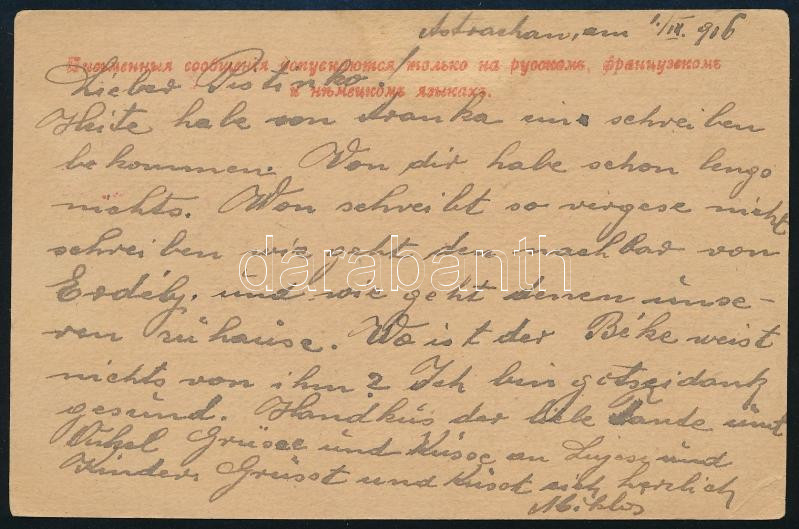 Astrachan, am 1./IX. 916
Письменныя сообщенія допускаются только на русскомъ, французскомъ
и нѣмецкомъ языкахъ.
Lieber Pistinko!
Heite habe von Aranka ein schreiben
bekommen. Von dir habe schon lengo
nichts. Won schreibt so vergese nicht
schreiben wie geht der nachbar von
Erdély. und wie geht denen unse-
ren zuhause. Wo ist der Béke weist
nichts von ihm? Ich bin gotseidank
gesund. Handkűs der liebe Tante und
Onkel Grüsee und Küsse an Lujcsi und
Kinder. Grüsst und Küsst dich herzlich
Miklos
darabanth